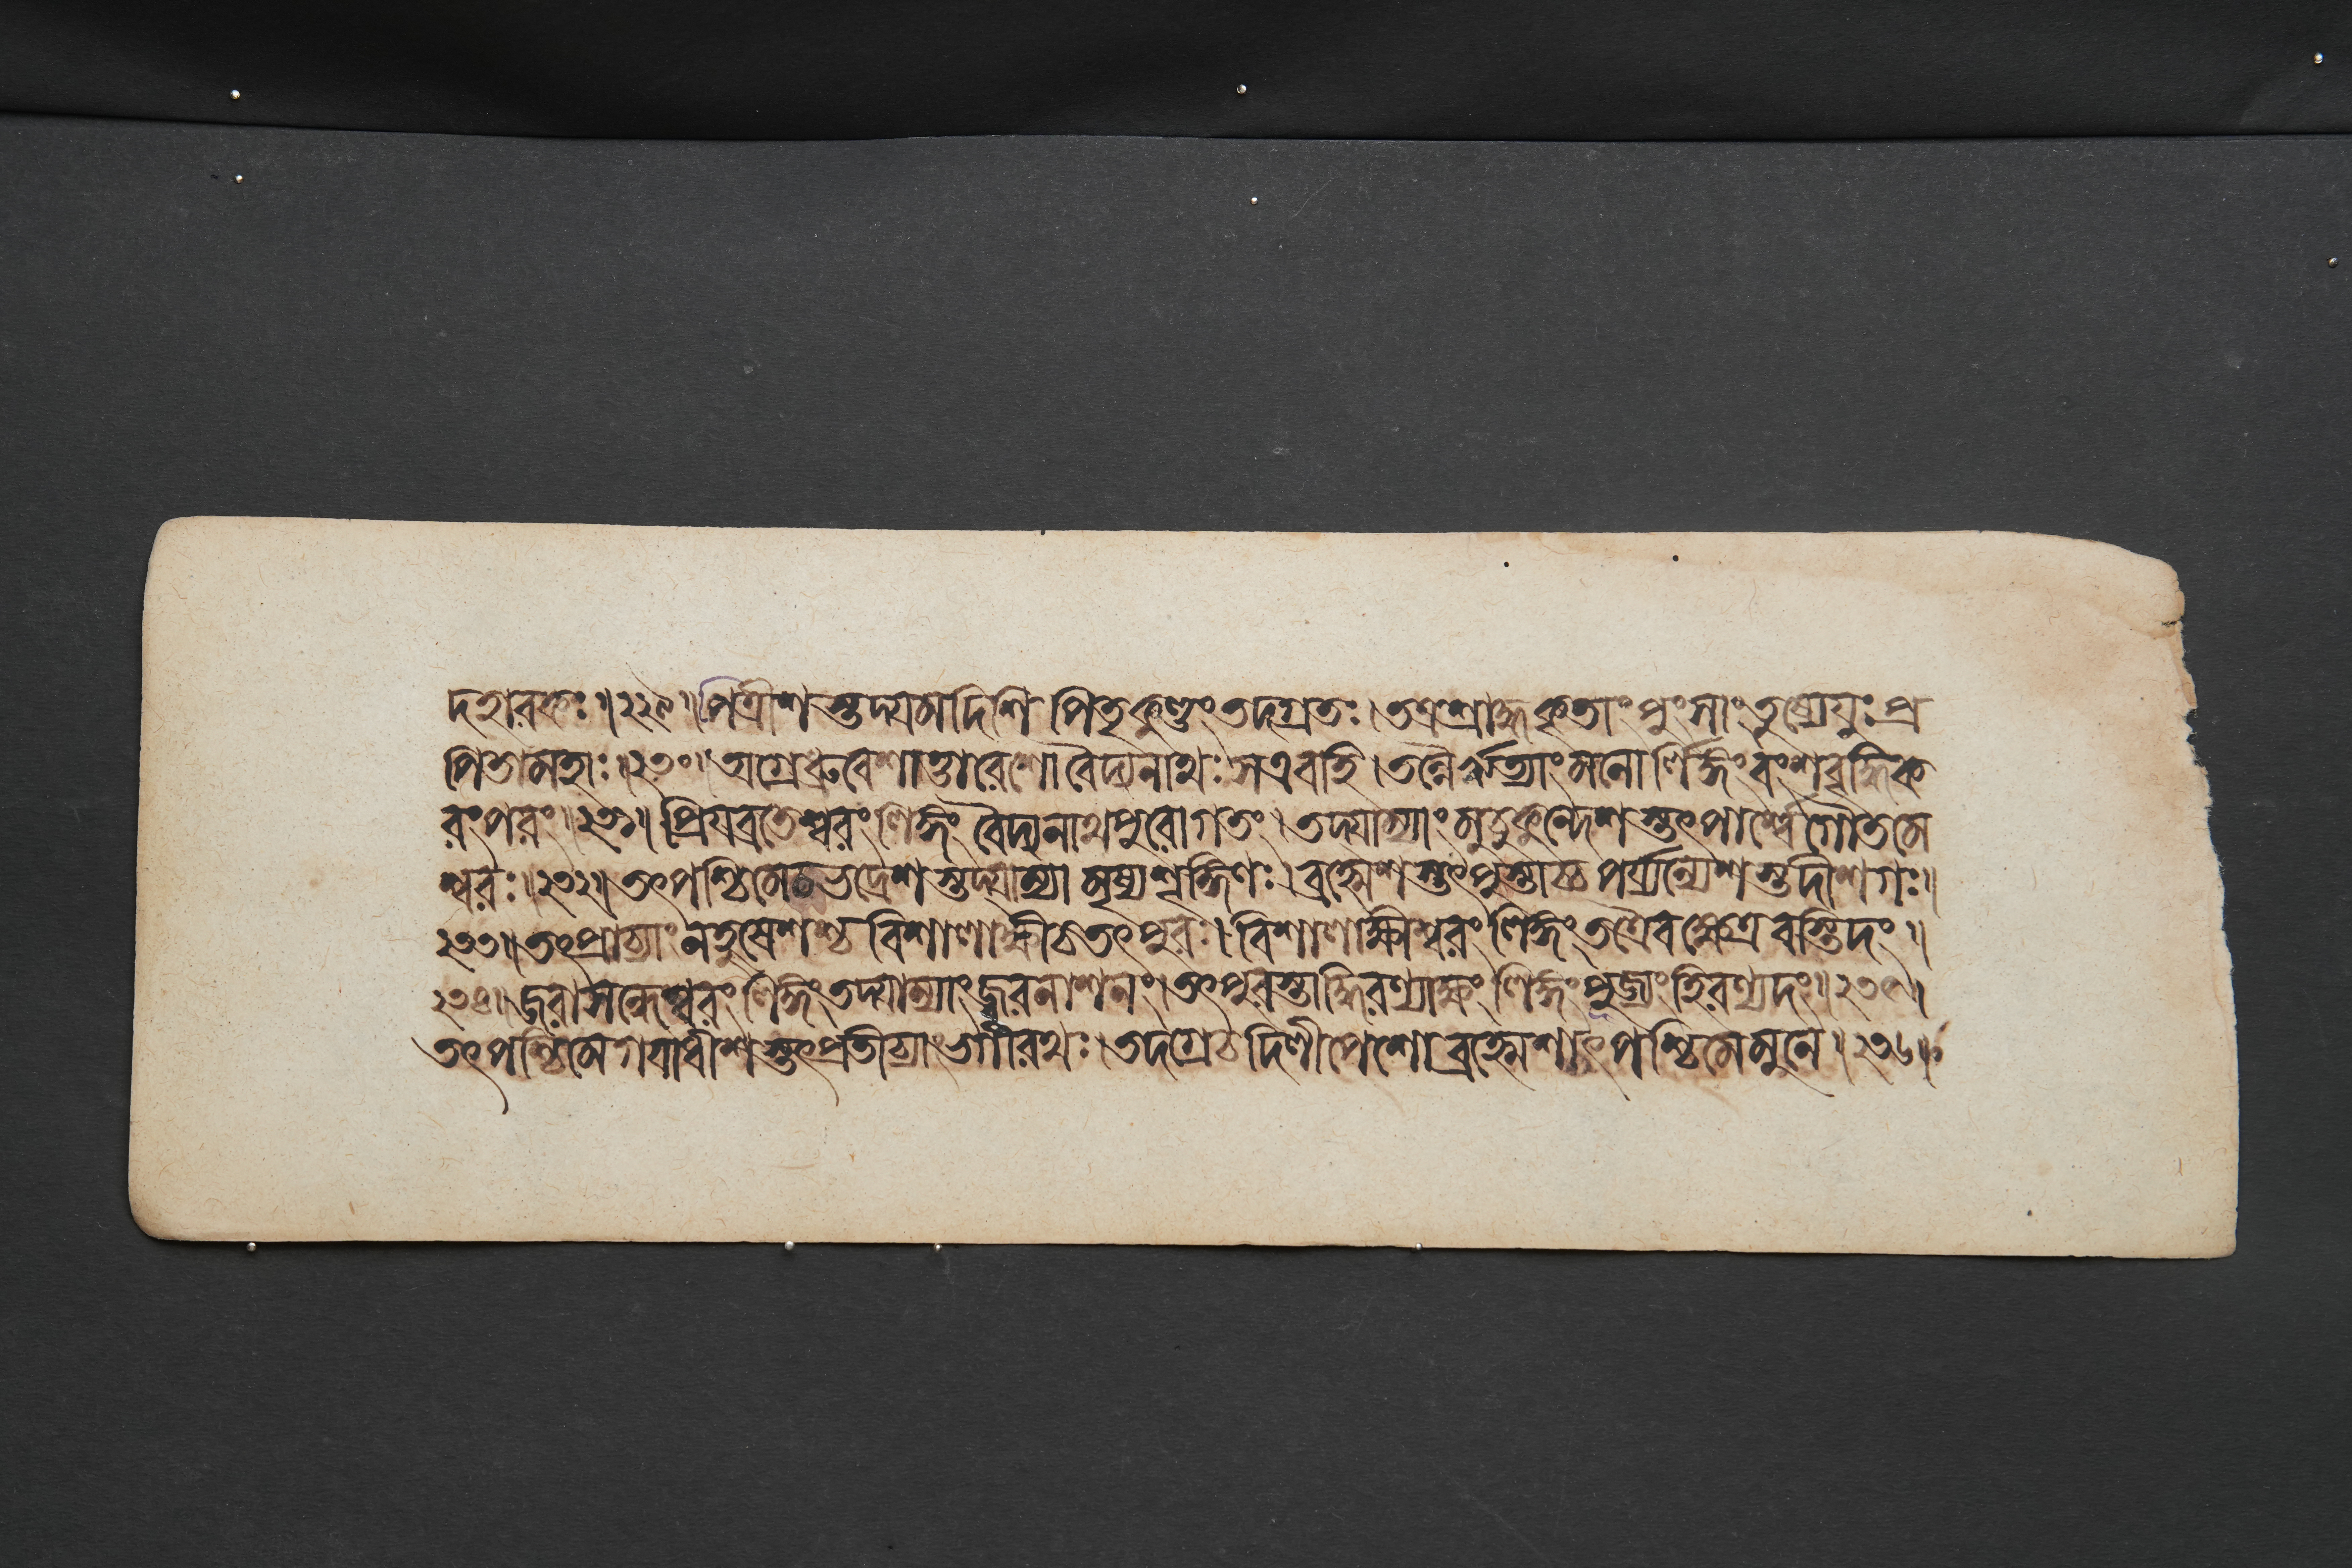 দহারকঃ॥২২৯॥পিত্রীশস্তদ্যমদিশি পিতৃকুণ্ডং তদগ্রতঃ।তত্রশ্রাদ্ধকৃতাং পুংসাং তুষ্যেয়ুঃ প্র
পিতামহাঃ॥২৩০॥অগ্রেধ্রুবেশাত্তারেশোবৈদ্যনাথঃ সএবহি।তন্নৈরৃত্যাংমনোর্লিঙ্গংবংশবৃদ্ধিক
রংপরং॥২৩১॥প্রিয়ব্রতেশ্বরং লিঙ্গং বৈদ্যনাথপুরোগতং।তদ্যাম্যাং মুচুকুন্দেশস্তৎপার্শ্বেগৌতমে
শ্বরঃ॥২৩২॥তৎপশ্চিমেচভদ্রেশস্তদ্যাম্যামৃষ্যশৃঙ্গিণঃ।ব্রহ্মেশস্তৎপুস্তাচ্চ পর্য্যন্যেশস্তদীশগঃ॥
২৩৩॥তৎপ্রাচ্যাংনহুষেশশ্চ বিশালাক্ষীচতৎপুরঃ।বিশালাক্ষীশ্বরং লিঙ্গং তত্রৈবক্ষেত্রবস্তিদং॥
২৩৪॥জরাসন্ধেশ্বরং লিঙ্গং তদ্যাম্যাংজ্বরনাশনং।তৎপুরস্তাদ্ধিরণ্যাক্ষং লিঙ্গং পূজ্যং হিরণ্যদং॥২৩৫।
তৎপশ্চিমেগয়াধীশস্তৎপ্রতীচ্যাং ভগীরথঃ।তদগ্রেচদিলীপেশোব্রহ্মেশাৎপশ্চিমেমুনে॥২৩৬॥